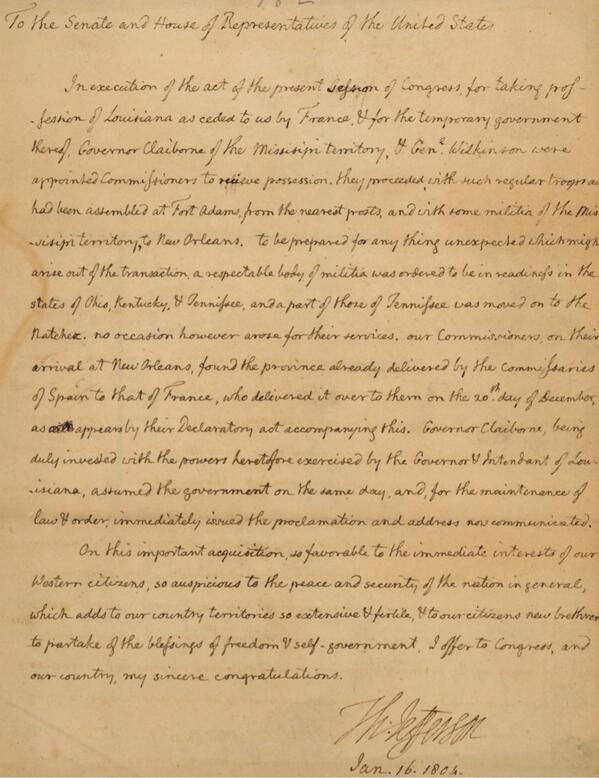 To the Senate and House of Representatives of the United States
In execution of the act of the present Session of Congress, for taking pos-
-session of Louisiana as ceded to us by France, & for the temporary government
thereof, Governor Claiborne of the Missisipi territory, & Genl. Wilkinson were
appointed Commissioners to recieve possession. they proceeded with such regular troops as
had been assembled at Fort Adams, from the nearest posts, and with some militia of the Mis
-sisipi territory, to New Orleans. to be prepared for any thing unexpected which migh
arise out of the transaction, a respectable body of militia was ordered to be in readiness in the
states of Ohio, Kentucky, & Tennissee, and a part of those of Tennissee was moved on to the
Natchez. no occasion however arose for their services. our Commissioners, on their
arrival at New Orleans, found the province already delivered by the Commissaries
of Spain to that of France, who delivered it over to them on the 20th day of December,
as appears by their Declaratory act accompanying this. Governor Claiborne, being
duly invested with the powers heretofore exercised by the Governor & Intendant of Lou-
-isiana, assumed the government on the same day, and, for the maintenance of
law & order, immediately issued the proclamation and address now communicated.
On this important acquisition, so favorable to the immediate interests of our
Western citizens, so auspicious to the peace and security of the nation in general,
which adds to our country territories so extensive & fertile, & to our citizens new brethren
to partake of the blessings of freedom & self-government, I offer to Congress, and
our country, my sincere congratulations.
Th: Jefferson
Jan. 16. 1804.